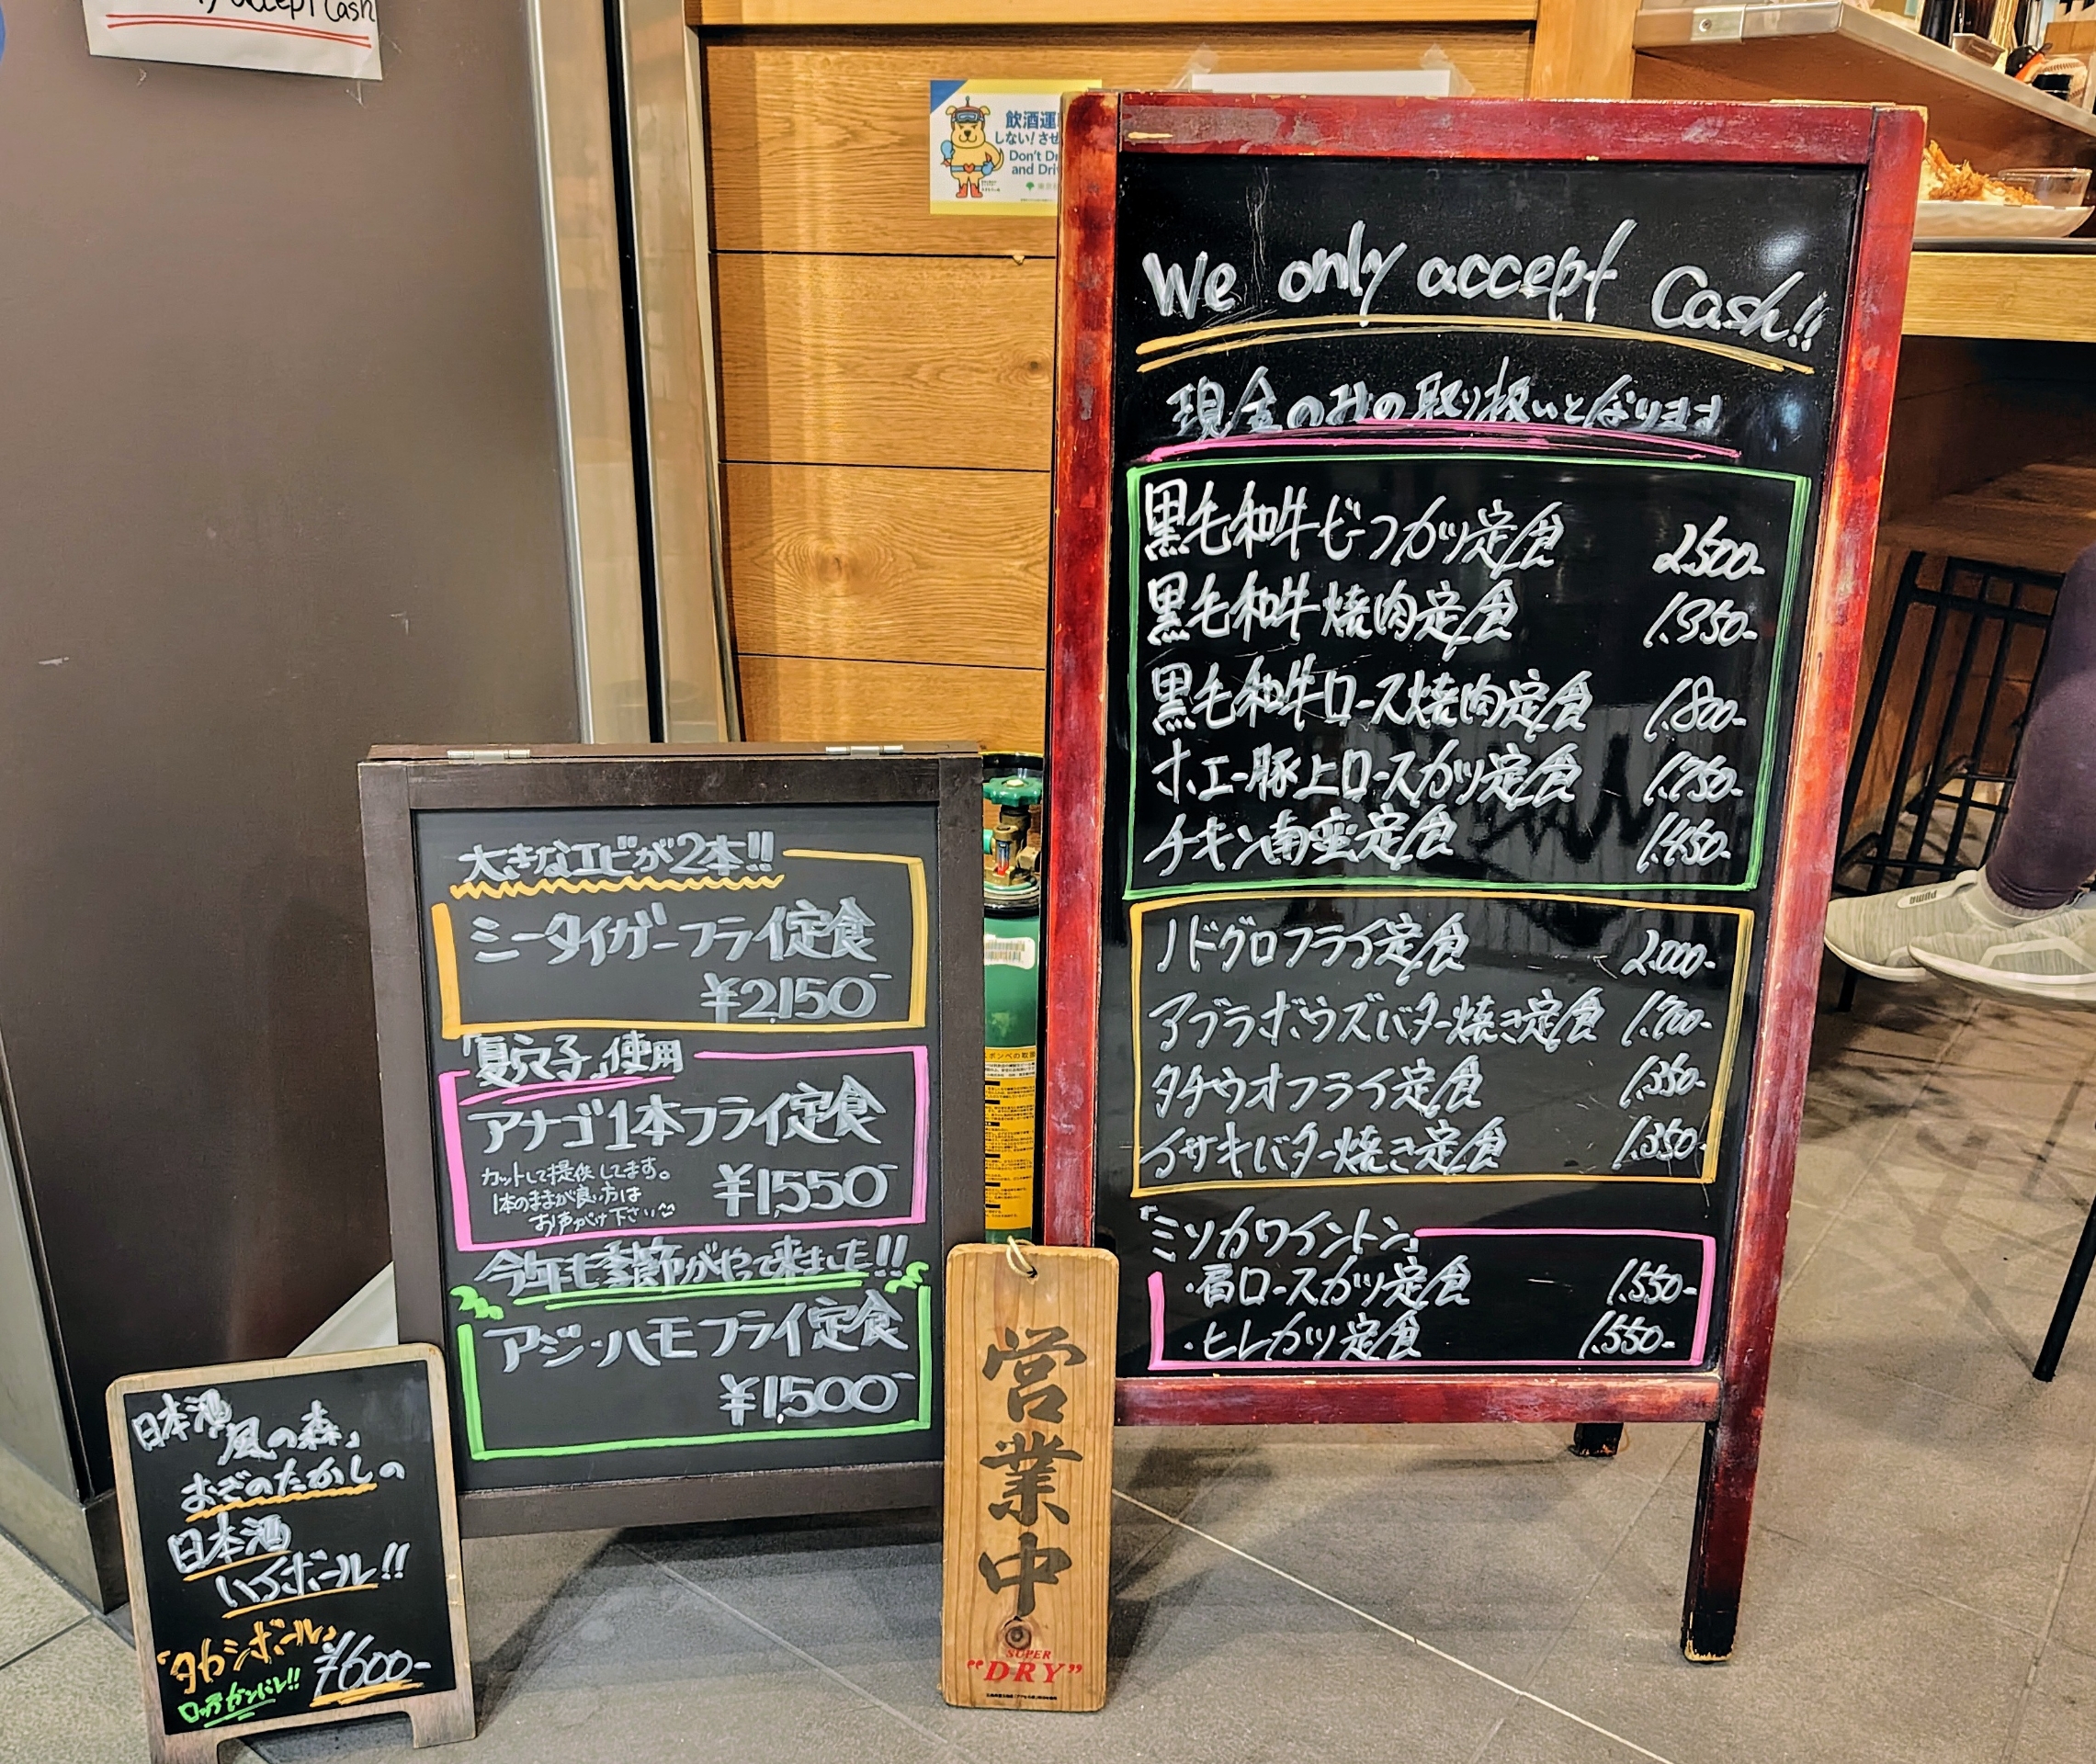 accept Cash
飲酒運
しない!させ
Don't Dr
and Driv
We only accept Cash!!
現金のみの取り扱いとなります
黒毛和牛ビーフカツ定食 2.500-
黒毛和牛焼肉定食 1.350-
黒毛和牛ロース焼肉定食 1.800-
ホエー豚上ロースカツ定食 1.750-
チキン南蛮定食 1.450-
ノドグロフライ定食 2.000-
アブラボウズバター焼き定食 1.700-
タチウオフライ定食 1.350-
イサキバター焼き定食 1.350-
『ミソカワイントン』
・肩ロースカツ定食 1.550-
・ヒレカツ定食 1.550-
大きなエビが2本!!
ミータイガーフライ定食
¥2,150-
「夏穴子」使用
アナゴ1本フライ定食
カットして提供してます。
1本のままが良い方は
お声がけ下さい
¥1,550-
今年も季節がやって来ました!!
アジ・ハモフライ定食
¥1,500-
日本酒
「風の森」
おぞのたかしの
日本酒
ハイボール!!
『タカシボール』
¥600-
営業中
SUPER
"DRY"
PUMA